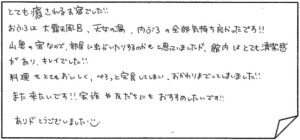 とても癒されるお宿でした!!
お風呂は大露天風呂、天女の湯、内ぶろの全部気持ち良かったです!!
山里の宿なので、部屋に虫がいたりするのかもと思っていましたが、館内はとても清潔感
があり、キレイでした!!
料理もとてもおいしく、ペロッと完食してしまい、おかわりまでしてしまいました!!
また来たいです!! 家族や友だちにもおすすめしたいです!!
ありがとうございました